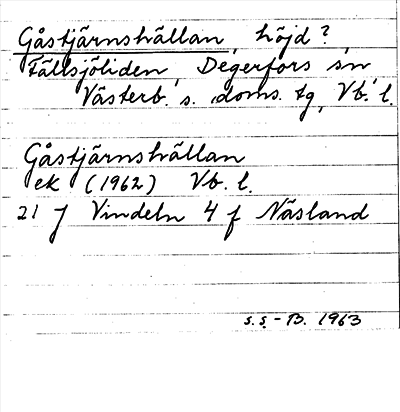 Gåstjärnshällan, höjd?,
Fällsjöliden, Degerfors sn,
Västerb. s. doms. tg, Vb. l.
Gåstjärnshällan
ek (1962) Vb. l.
21 J Vindeln 4 f Näsland
S.S.-B. 1963